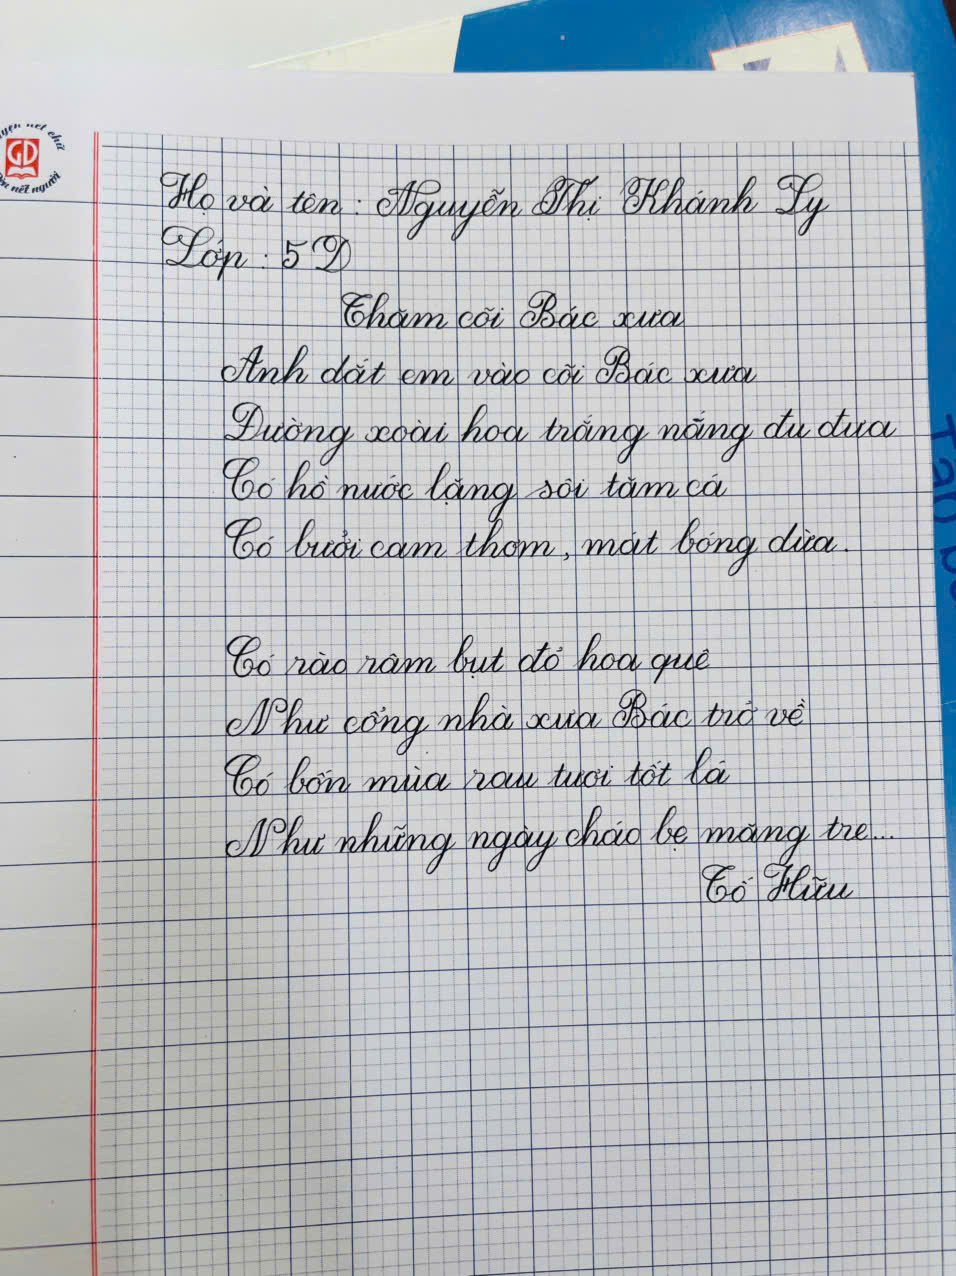 Họ và tên : Nguyễn Thị Khánh Ly
Lớp : 5D
Thăm cõi Bác xưa
Anh dắt em vào cõi Bác xưa
Đường xoài hoa trắng nắng đu đưa
Có hồ nước lặng sôi tăm cá
Có bưởi cam thơm, mát bóng dừa.
Có rào râm bụt đỏ hoa quê
Như cổng nhà xưa Bác trở về
Có bốn mùa rau tươi tốt lá
Như những ngày cháo bẹ măng tre...
Tố Hữu
nét chữ
GD
nết người